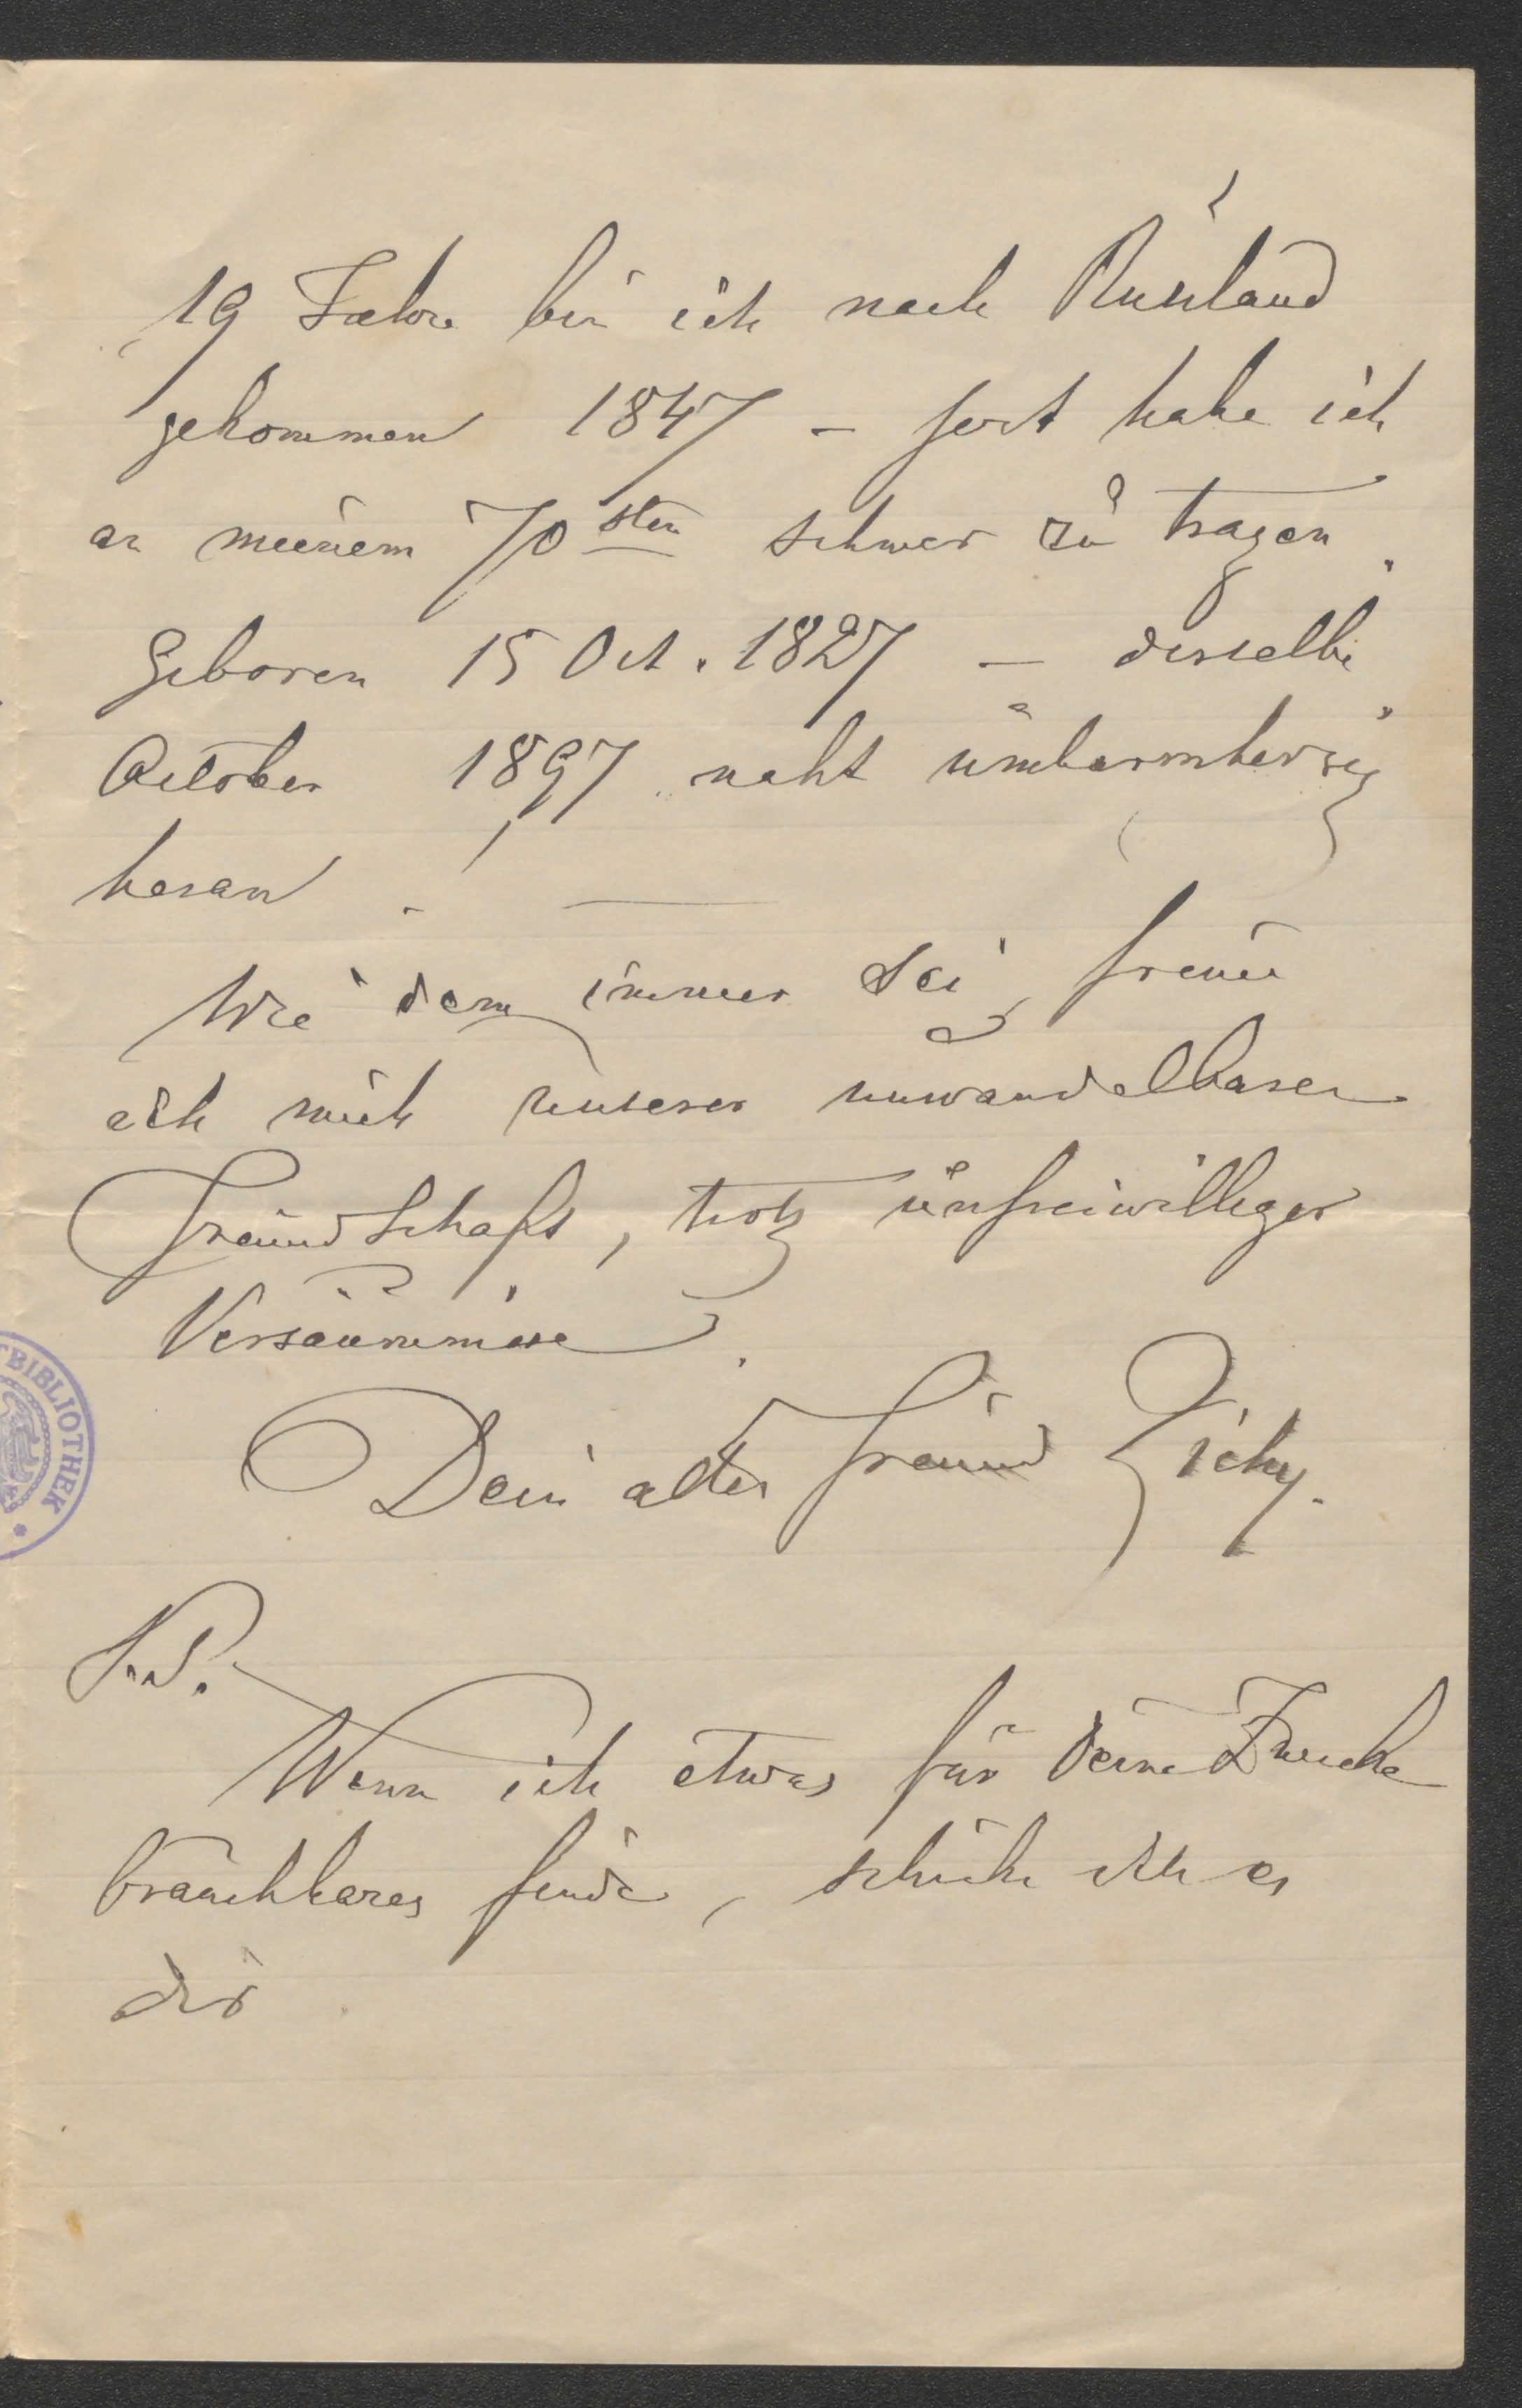 19 Jahre bin ich nach Russland
gekommen 1847 – jezt habe ich
an meinem 70sten schwer zu tragen.
Geboren 15 Oct. 1827 — derselbe
October 1897 naht unbarmherzig
heran. —
Wie dem immer sei, freue
ich mich unserer unwandelbaren
Freundschaft, trotz unfreiwilliger
Versäumnisse.
Dein alter Freund Zichy.
P.S.
Wenn ich etwas für deine Zwecke
brauchbares finde, schicke ich es
dir.
BIBLIOTHEK